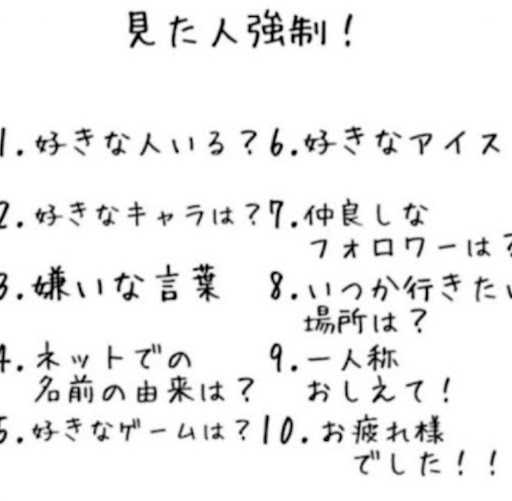 見た人強制！
1.好きな人いる？
2.好きなキャラは？
3.嫌いな言葉
4.ネットでの
名前の由来は？
5.好きなゲームは？
6.好きなアイス
7.仲良しな
フォロワーは？
8.いつか行きたい
場所は？
9.一人称
おしえて！
10.お疲れ様
でした！！